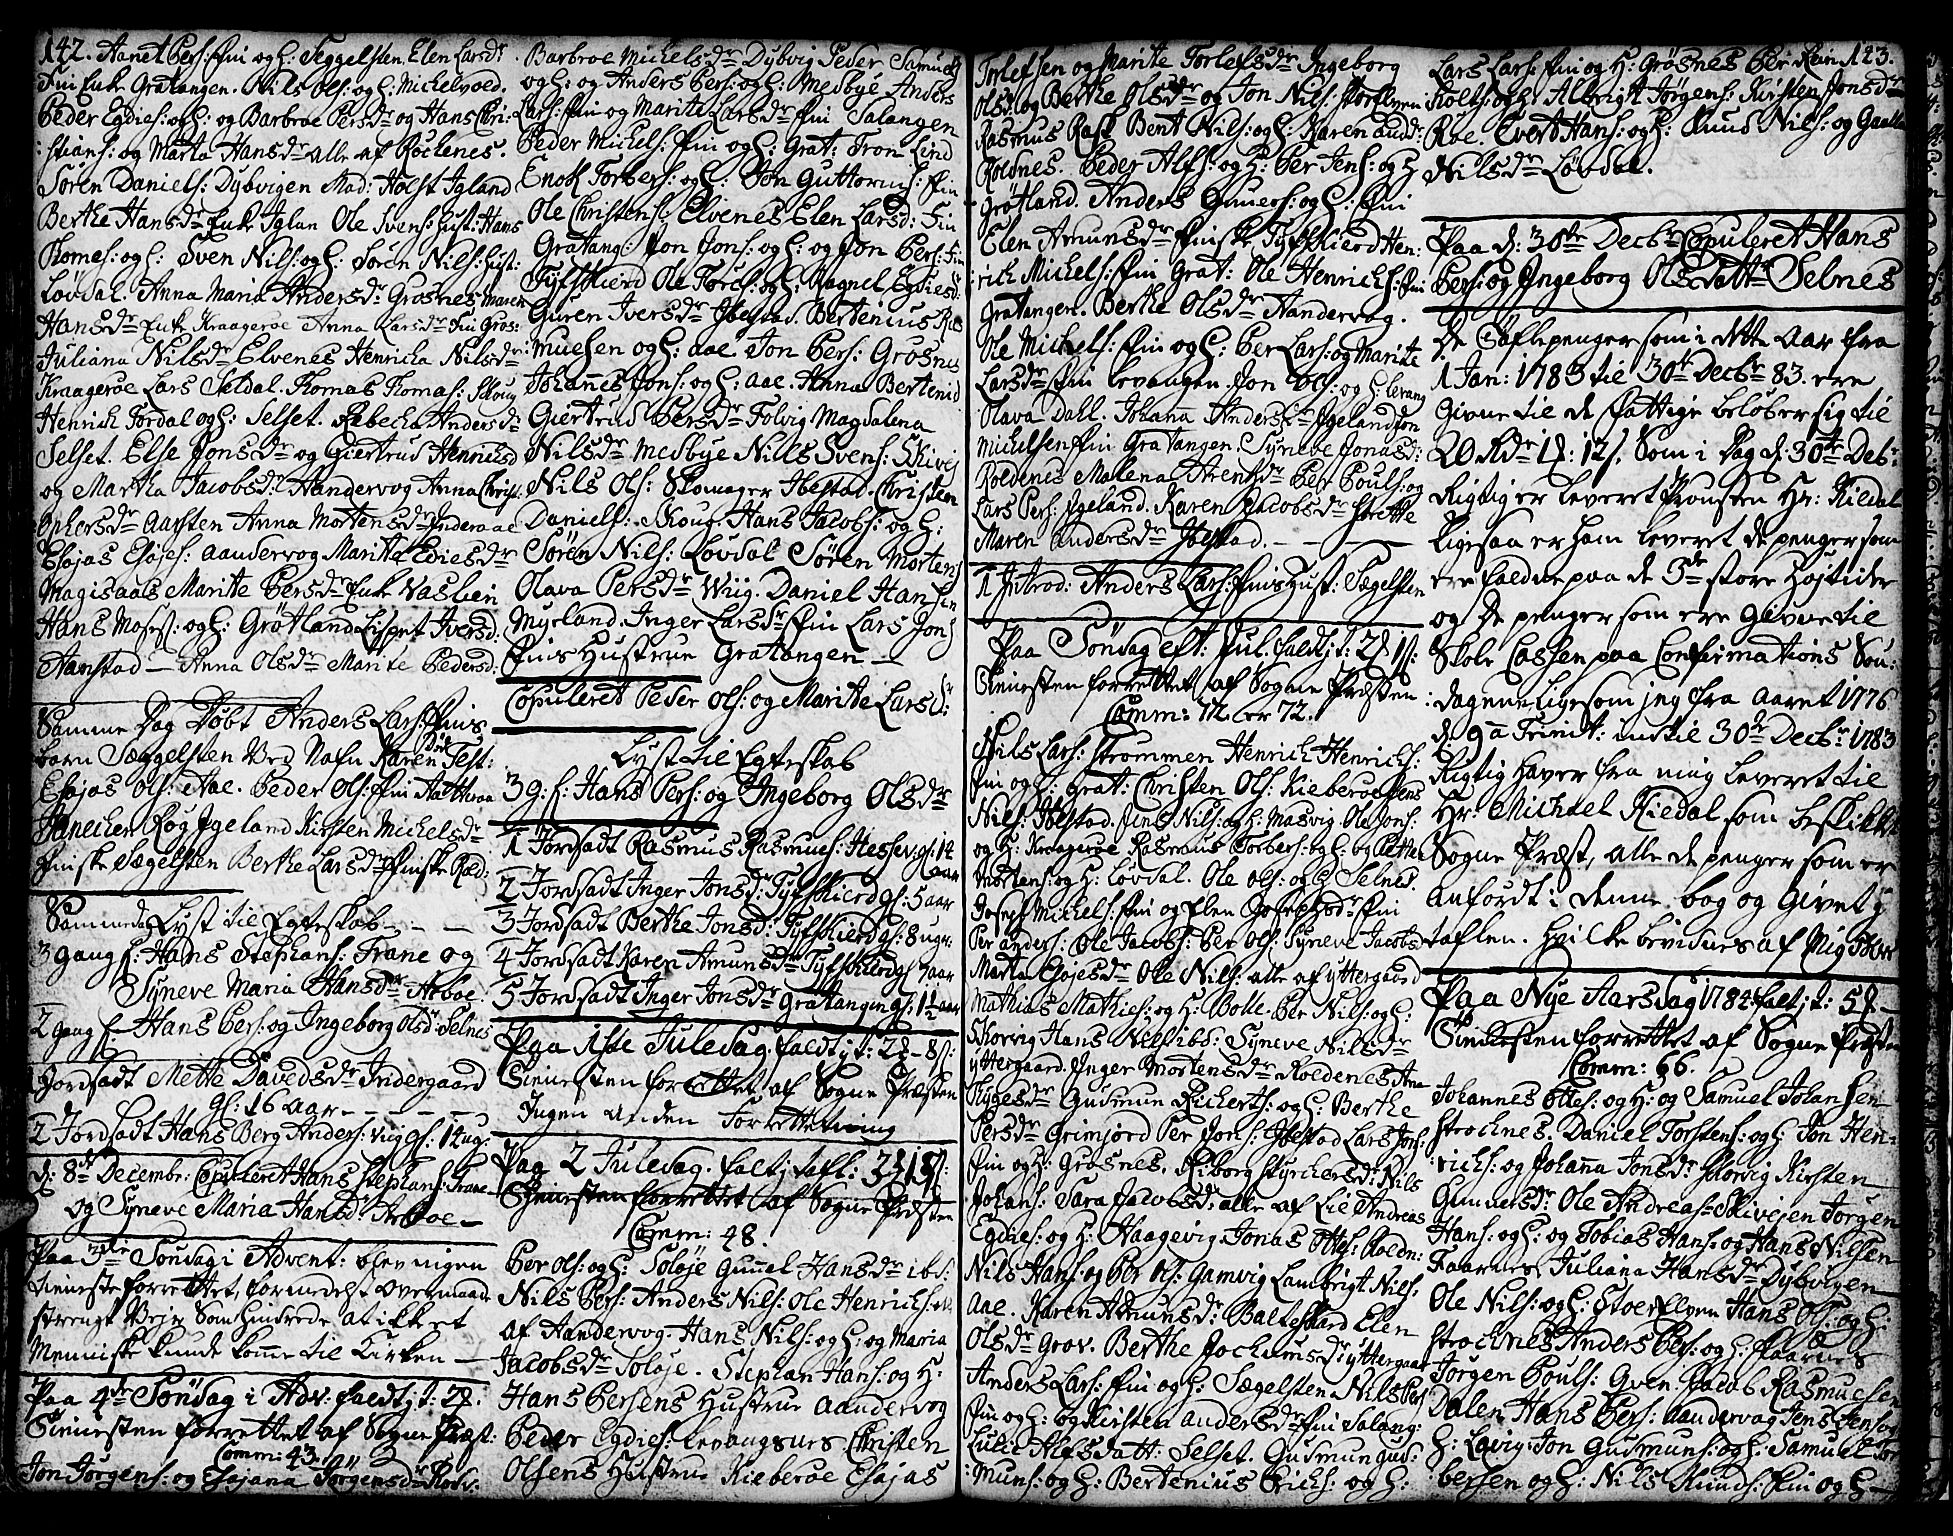 142. Hanet Pers: fin og H: Seggelsten. Elen Larsdr
Fin Enke Gratangen. Nils Ols: og H: Michelvoed.
Peder Egdies: og H: og Barbroe Persdr og Hans Chri:
stians: og Marta Hansdr alle af Röckenes.
Sören Daniels: Dybvigen Mad: Holst Igland
Berthe Hansdr Enke Iglan Ole Svens: Hust: Hans
Thomes: og H: Sven Nils: og H: Sören Nils: Hust:
Lövdal. Anna Maria Andersdr Grosnes Maren
Hansdr Enke Kraageröe Anna Larsdr Fin Gros:
Juliana Nilsdr Elvenes Henricha Nilsdr
Kraageröe Lars Seldal. Thomas Thomas: Skoug
Henrich Fordal og H: Selset. Rebecha Andersdr
Selset. Else Jonsdr og Giertrud Henrichsd
og Martha Jacobsdr Handervog Anna Christ:
Onkersdr Aarsten Anna Mortensdr Inderaae
Esajas Esajes: Aandervog Marithe Ediesdr
Magisaas Marithe Persdr Enke Vaslien
Hans Moses: og H: Grötland Lisbet Iversd:
Hanstad — Anna Olsdr Marite Pedersd:
Samme Dag Döbt Anders Lars: Fins
barn Sæggelsten Ved Nafn Karen Test:
Esajas Ols: Aae. Peder Ols: Fin
Igeland Kirsten Michelsdr
Finske Sægelsten Berthe Larsdr Finske Rold:
Sammeda Lyst til Egteskab — — —
3 gang f: Hans Staphans: Trane og
Syneve Maria Hansdr Arboe.
2 gang f. Hans Pers: og Ingeborg Olsdr Selnes
Jordsadt Mette Davedsdr Indergaard
gl: 16 aar — — — —
2 Jordsadt Hans Berg Anders: Vug gl: 14 ug:
d: 8de Decembr: Copuleret Hans Stephans: Trane
og Syneve Maria Hansdr Arboe —
Paa 3die Söndag i Advent: blev ingen
tieneste forrettet, formedelst Overmaade
strengt Vejr Som hindrede at ikke et
Menniske kunde komme til Kirken —
Paa 4de Söndag i Adv: faldt i t: 2
Tienesten forrettet af Sogne Præst:
Comm: 43.
Jon Jörgens: og Esajana Jörgensdr Rolv:
Barbroe Michelsdr Dybvig Peder Samuels
og H: og Anders Pers: og H: Medbye Anders
Lars: Fin og Marita Larsdr Fin Salangen
Peder Michels: Fin og H: Grat: Tron Lind
Enok Torbers: og H: Jon Guttorms: Fin
Ole Christens: Elvenes Elen Larsd: Fin
Gratang: Jon Jons: og H: og Jon Pers: Fin
Tyfskierd Ole Torch: og H: Ragnel Egdiesd:
Guren Iversdr Ibestad. Bertenius Ras
muesen og H: Aae Jon Pers: Grosnes
Johannes Jons: og H: Aae. Anna Bertenid
Giertrud Persdr Folvig Magdalena
Nilsdr Medbye Nills Svens: Skivej
Nils Ols: Skomager Ibestad. Christen
Daniels: Skoug. Hans Jacobs: og H:
Sören Nils: Lovdal Sören Mortens
Olava Persdr Wiig. Daniel Hansen
Myrland. Inger Larsdr Fin Lars Jons
Fins Hustrue Gratangen —
Copuleret Peder Ols: og Marithe Larsd:
Lyst til Egteskab
3 g: f: Hans Pers: og Ingeborg Olsdr
1 Jordsadt Rasmus Rasmues: Hessev: gl: 14 aar
2 Jordsadt Inger Jonsdr: Tyfskierd gl: 5 aar
3 Jordsadt Berthe Jonsd: Tyfskierd gl: 8 uger
4 Jordsadt Karen Amunsdr Tyfskierd gl: 7 aar
5 Jordsadt Inger Jonsdr Gratangen gl: 1½ aar
Paa 1ste Juledag. faldt i t: 2 — 8 s:
Tienesten forrettet af Sogne Præsten
Ingen anden Forretning
Paa 2 Juledag. falt i tafl: 3 15 s:
Tienesten forrettet af Sogne Præsten
Comm: 48.
Per Ols: og H: Solöje Gunnel Hansdr ibd:
Nils Pers: Anders Nils: Ole Henrichs:
af Handervog. Hans Nils: og H: og Maria
Jacobsdr Soloje. Stephan Hans: og H:
Hans Persens Hustrue Aandervog
Peder Egdies: Levangsnes Christen
Olsens Hustrue Kieberöe Esajas
Torlefsen og Marite Torlefsdr Ingeborg
Olsd: og Berthe Olsdr og Jon Nils: Storelven
Rasmus Rask Bent Nils: og H: Karen And:
Roldnes. Peder Alfs: og H: Per Jens: og H
Grötland. Anders Guners: og H: Fin
Elen Amunsdr Finske Tyfskierd Hen:
rich Michels: Fin Grat: Ole Henrichs: Fin
Gratangen. Berthe Olsdr Handervog.
Ole Michels: Fin og H: Per Lars: og Marithe
Larsdr Fin Levangen. Jon Ols: og H: Levang
Olava Dahl. Johana Andersdr Igeland Jon
Michelsen Fin Gratangen. Syneve Jonasd:
Roldenes Malena Arensdr Per Pouls: og
Lars Pers: Igeland. Karen Jacobsdr Dorethe
Maren Andersdr Ibestad. — — —
1 Introd: Anders Lars: Fins Hust: Sægelsten
Paa Söndag eft: Jul. faldt i t: 2 1 s:
Tienesten forrettet af Sogne Præsten
Comm: 72. er 72.
Nils Lars: Strommen Henrich Henrichs:
Fin og H: Grat: Christen Ols: Kieberöe Jens
Nils: Ibestad. Jens Nils: og H: Masvig. Ole Jons:
og H: Kraageröe Rasmus Torbers: og H: og Peder
Mortens: og H: Lovdal. Ole Ols: og H Selnes.
Joseph Michels: Fin og Elen Josephsdr Fin
Per Anders: Ole Jacobs: Per Ols: Syneve Jacobs
Marta Esajesdr Ole Nils: alle af Yttergaard
Mathias Mathies: og H: Bolle. Per Nils: og H:
Skorvig Hans Nels: ibd: Syneve Nilsdr
Yttergaard. Inger Mortensdr Roldenes Ana
Thygesdr Gudmun Richerts: og H: Berthe
Persdr Grimsiord Per Jons: Ibestad Lars Jons:
Fin og H: Grosnes. Riborg Styrchersdr: Nils
Johans: Sara Jacobsdr: alle af Lie Andreas
Egdies: og H: Haagevig. Jonas Ottes: Roldn:
Nils Hans: og Per Ols: Gamvig Lambrigt Nils:
Aae. Karen Amunsdr: Baltesgaard Elen
Olsdr Grov. Berthe Jochumsdr: Yttergaard
Anders Lars: Fin og H: Sægelsten Nils Pers
Fin og H: og Kirsten Andersdr Fin Salang:
Lucie Alfsdatt: Selset. Gudmun Gud:
muns: og H: Bertenius Erichs: og H:
Lars Lars: Fin og H: Grosnes Per Rein 143.
Holts: og H: Albrigt Jörgens: Kirsten Jonsdr
Roe. Evert Hans: og H: Knud Nils: og Gunla
Nilsdr Lövdal.
Paa d: 30te Decbr Copuleret Hans
Pers: og Ingeborg Olsdattr Selnes
De Taflepenger som i dette Aar fra
1 Jan: 1783 til 30te Decbr 83. ere
Givne til de fattige belöber sig til
20 Rdr 1 : 12 s. Som i Dag d: 30te Debr
Rigtig er leveret Provsten Hr: Kildal
ligesaa er ham leveret de penger som
ere faldne paa de 3de store Højtider
og de penger som ere Givne til
Skole Cassen paa Confirmations Sön:
dagene, ligesom jeg fra Aaret 1776
d 9de Trinit: indtil 30te Decbr 1783
Rigtig haver fra mig leveret til
Hr: Michael Kildal som beskikket
Sogne Præst, alle de penger som er
anfördt i denne bog og Givet i
taflen. Hvilke bevidnes af Mig
Paa Nye Aarsdag 1784 falt i t: 5
Tienesten forrettet af Sogne Præsten
Comm: 66.
Johannes Ottes: og H: og Samuel Johansen
Strochnes. Daniel Torstens: og H: Jon Hen:
richs: og Johanna Jonsdr Skorvig Kirsten
Gunnersdr: Ole Andreas: Skivejen Jörgen
Hans: og H: og Tobias Hans: og Hans Nilsen
Faarnes Juliana Hansdr: Dybvigen
Ole Nils: og H: Stoerelven Hans Ols: og H:
Strochnes Anders Pers: og H: Faarnes
Jörgen Pouls: Qven. Jacob Rasmuesen
Dalen Hans Pers: Aandervog Jens Jens: og
H: Lavig. Jon Gudmuns: og H: Samuel Tor
bersen og H: Nils Knuds: Fin og H —